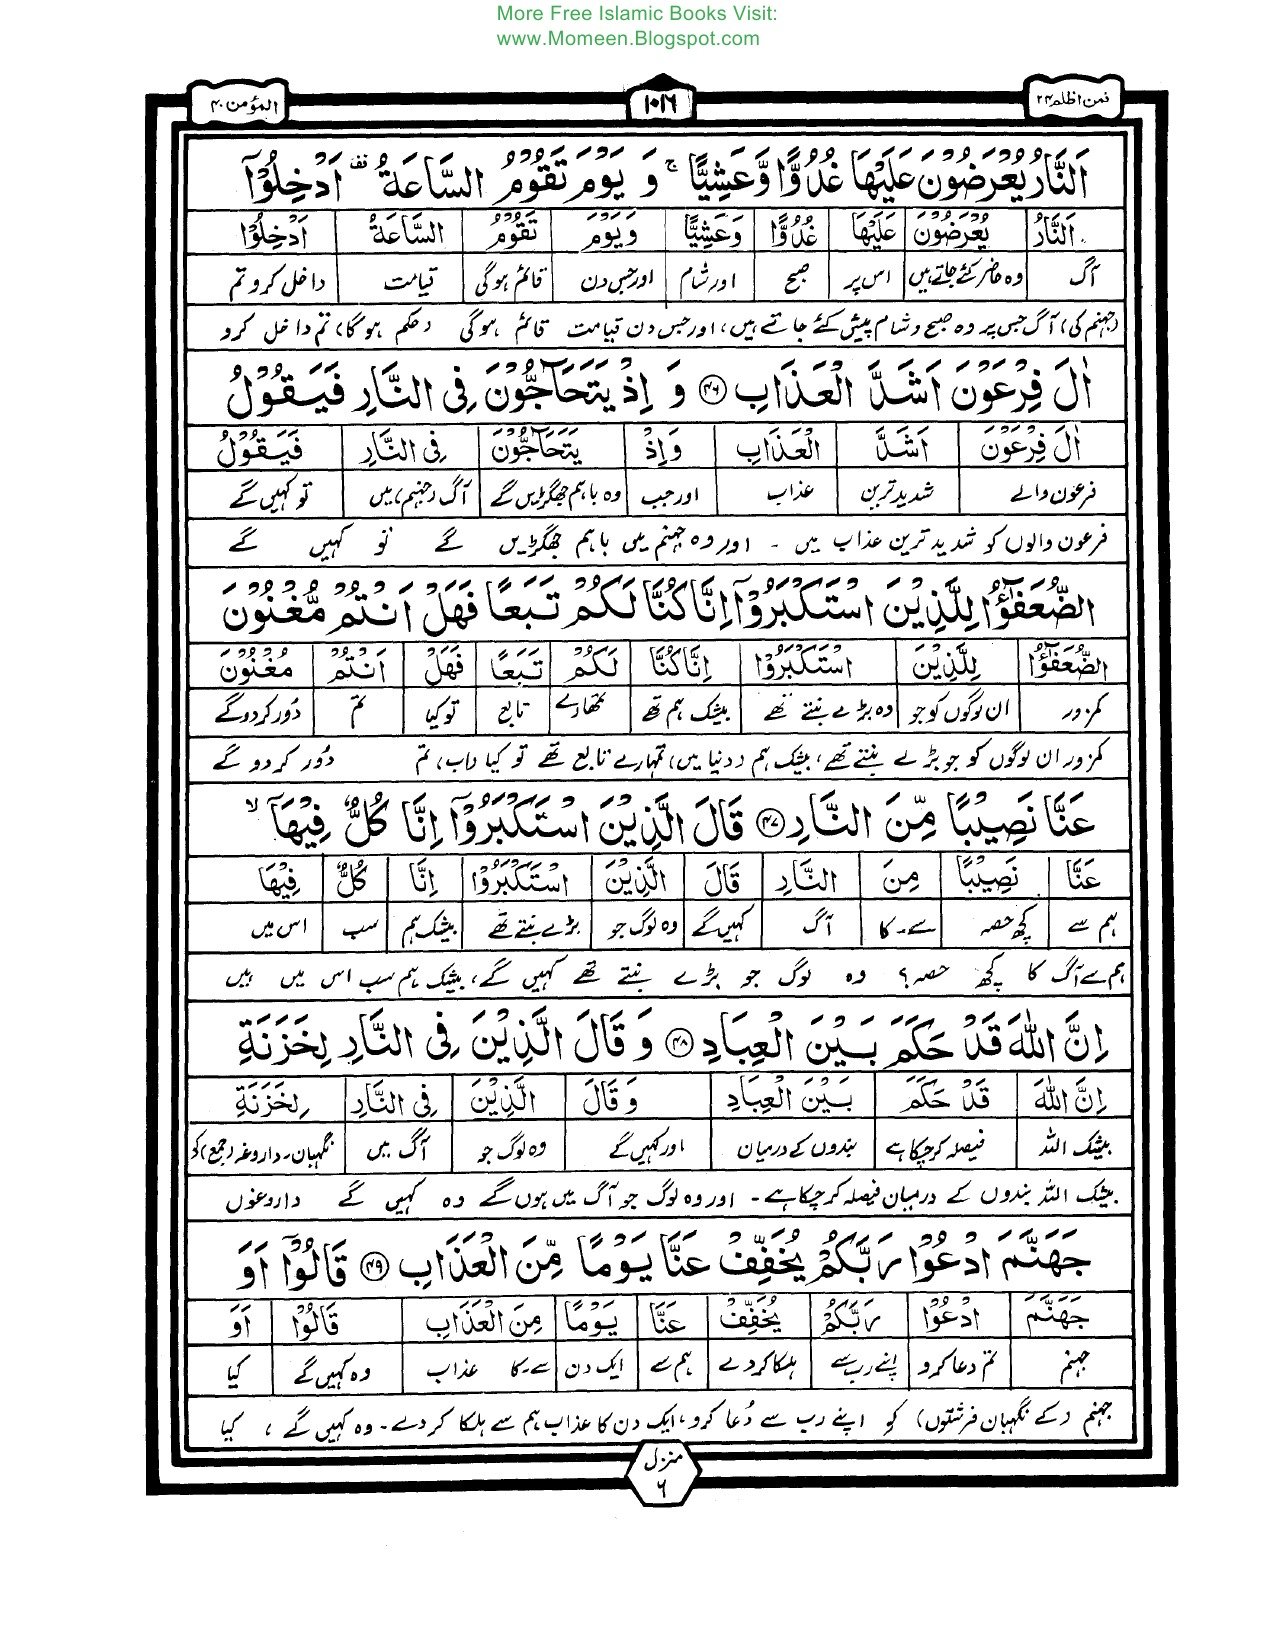 More Free Islamic Books Visit:
www.Momeen.Blogspot.com
فمن اظلم ۲۴ ۱۰۱۶ المؤمن ۴۰
اَلنَّارُ یُعْرَضُوْنَ عَلَیْهَا غُدُوًّا وَّعَشِیًّا ۚ وَ یَوْمَ تَقُوْمُ السَّاعَةُ ۫ اَدْخِلُوْۤا
اَلنَّارُ یُعْرَضُوْنَ عَلَیْهَا غُدُوًّا وَعَشِیًّا وَیَوْمَ تَقُوْمُ السَّاعَةُ اَدْخِلُوْا
آگ وہ حاضر کئے جاتے ہیں اس پر صبح اور شام اور جس دن قائم ہوگی قیامت داخل کرو تم
(جہنم کی) آگ جس پر وہ صبح وشام پیش کئے جاتے ہیں، اور جس دن قیامت قائم ہوگی (حکم ہوگا) تم داخل کرو
اٰلَ فِرْعَوْنَ اَشَدَّ الْعَذَابِ ﴿۴۶﴾ وَ اِذْ یَتَحَآجُّوْنَ فِی النَّارِ فَیَقُوْلُ
اٰلَ فِرْعَوْنَ اَشَدَّ الْعَذَابِ وَاِذْ یَتَحَاجُّوْنَ فِی النَّارِ فَیَقُوْلُ
فرعون والے شدید ترین عذاب اور جب وہ باہم جھگڑیں گے آگ (جہنم) میں تو کہیں گے
فرعون والوں کو شدید ترین عذاب میں ۔ اور وہ جہنم میں باہم جھگڑیں گے تو کہیں گے
الضُّعَفٰٓؤُا لِلَّذِیْنَ اسْتَكْبَرُوْۤا اِنَّا كُنَّا لَكُمْ تَبَعًا فَهَلْ اَنْتُمْ مُّغْنُوْنَ
الضُّعَفٰٓؤُا لِلَّذِیْنَ اسْتَكْبَرُوْا اِنَّا كُنَّا لَكُمْ تَبَعًا فَهَلْ اَنْتُمْ مُغْنُوْنَ
کمزور ان لوگوں کو جو وہ بڑے بنتے تھے بیشک ہم تھے تمھارے تابع تو کیا تم دُور کردوگے
کمزور ان لوگوں کو جو بڑے بنتے تھے، بیشک ہم (دنیا میں) تمہارے تابع تھے تو کیا (اب) تم دُور کر دو گے
عَنَّا نَصِیْبًا مِّنَ النَّارِ ﴿۴۷﴾ قَالَ الَّذِیْنَ اسْتَكْبَرُوْۤا اِنَّا كُلٌّ فِیْهَاۤ ۙ
عَنَّا نَصِیْبًا مِنَ النَّارِ قَالَ الَّذِیْنَ اسْتَكْبَرُوْا اِنَّا كُلٌّ فِیْهَا
ہم سے کچھ حصہ سے۔کا آگ کہیں گے وہ لوگ جو بڑے بنتے تھے بیشک ہم سب اس میں
ہم سے آگ کا کچھ حصہ؟ وہ لوگ جو بڑے بنتے تھے کہیں گے، بیشک ہم سب اس میں ہیں
اِنَّ اللّٰهَ قَدْ حَكَمَ بَیْنَ الْعِبَادِ ﴿۴۸﴾ وَ قَالَ الَّذِیْنَ فِی النَّارِ لِخَزَنَةِ
اِنَّ اللّٰهَ قَدْ حَكَمَ بَیْنَ الْعِبَادِ وَقَالَ الَّذِیْنَ فِی النَّارِ لِخَزَنَةِ
بیشک اللہ فیصلہ کرچکا ہے بندوں کے درمیان اور کہیں گے وہ لوگ جو آگ میں نگہبان۔داروغہ (جمع) کو
بیشک اللہ بندوں کے درمیان فیصلہ کر چکا ہے ۔ اور وہ لوگ جو آگ میں ہوں گے وہ کہیں گے داروغوں
جَهَنَّمَ ادْعُوْا رَبَّكُمْ یُخَفِّفْ عَنَّا یَوْمًا مِّنَ الْعَذَابِ ﴿۴۹﴾ قَالُوْۤا اَوَ
جَهَنَّمَ ادْعُوْا رَبَّكُمْ یُخَفِّفْ عَنَّا یَوْمًا مِنَ الْعَذَابِ قَالُوْا اَوَ
جہنم تم دعا کرو اپنے رب سے ہلکا کردے ہم سے ایک دن سے۔کا عذاب وہ کہیں گے کیا
جہنم (کے نگہبان فرشتوں) کو اپنے رب سے دُعا کرو، ایک دن کا عذاب ہم سے ہلکا کر دے۔ وہ کہیں گے ، کیا
منزل
۶